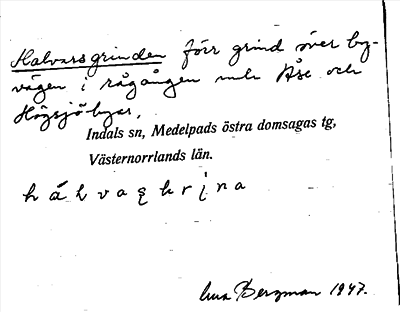 Halvarsgrinden förr grind över by-
vägen i rågången mln Åse och
Högsjö byar,
Indals sn, Medelpads östra domsagas tg,
Västernorrlands län.
Bergman 1947.